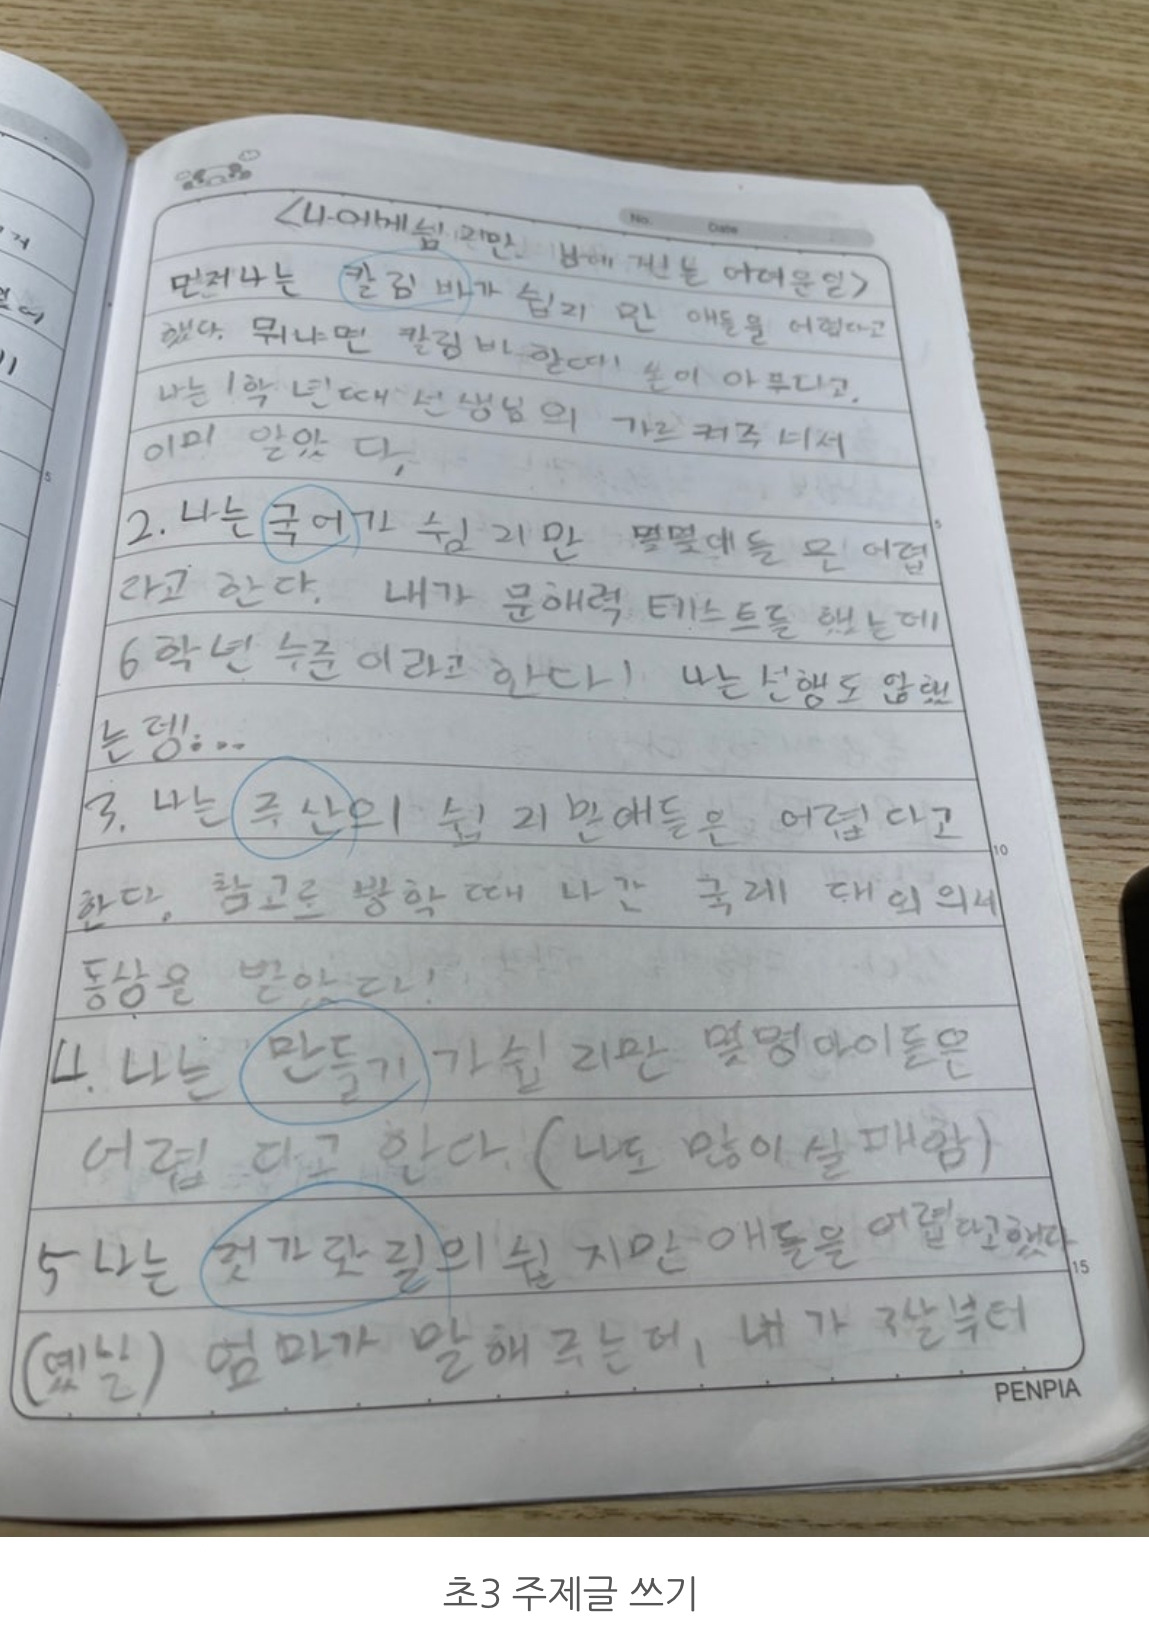 No. Date
<나에게 쉽지만 남에겐는 어려운일>
먼저나는 칼림바가 쉽지 만 애들을 어렵다고
했다. 뭐냐면 칼림바 할때! 손이 아푸다고.
나는 1학년때 선생님의 가르켜주너서
이미 알았다,
2. 나는 국어가 쉽지만 몇몇애들 은 어렵
라고 한다. 내가 문해력 테스트들 했는데
6학년 수준이라고 한다! 나는 선행도 않했
는뎅!...
3. 나는 주산의 쉽지만애들은 어렵다고
한다. 참고로 방학때 나간 국제 대회의서
동상을 받았다!
4. 나는 만들기가쉽지만 몇명아이들은
어렵 다고 한다. (나도 많이 실패함)
5 나는 젓가락질의쉽 지만 애들을 어렵다고했다
(옜날) 엄마가 말해주는데, 내가 부터
5
10
15
PENPIA
거
11
5
초3 주제글 쓰기